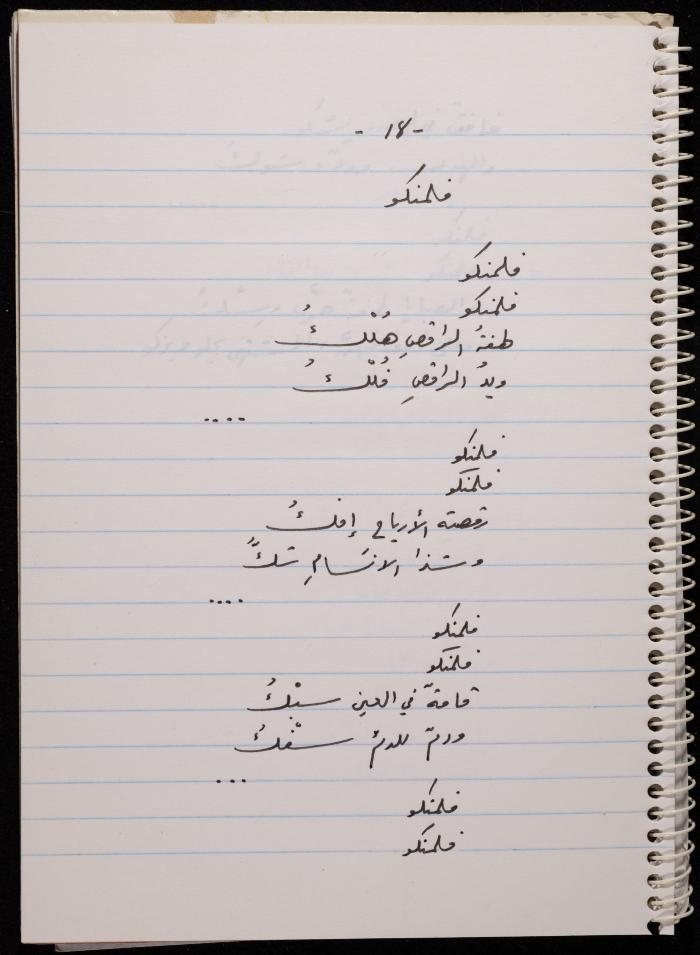 - ١٨ -
فلمنكو
فلمنكو
فلمنكو
طفةُ الراقصِ هُلْكُ
ويدُ الراقصِ فُلْكُ
....
فلمنكو
فلمنكو
رقصة الأرياح إفكُ
وشذا الانسَامِ شكٌّ
....
فلمنكو
فلمنكو
قامةٌ في العين سبْكُ
ودمٌ للدمِ سفْكُ
...
فلمنكو
فلمنكو